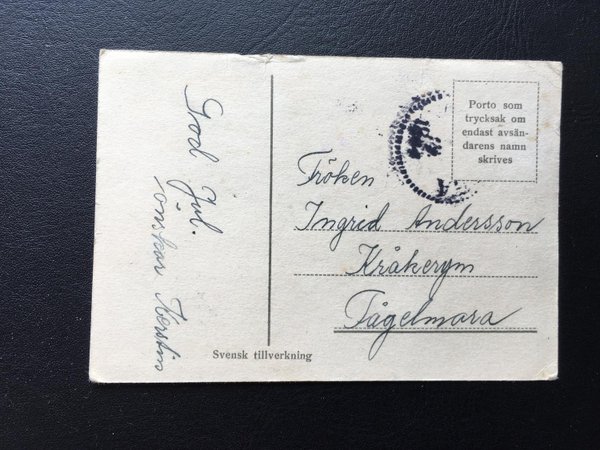 God Jul.
önskar Kerstin
Porto som
trycksak om
endast avsän-
darens namn
skrives
Fröken
Ingrid Andersson
Kråkerym
Fågelmara
Svensk tillverkning